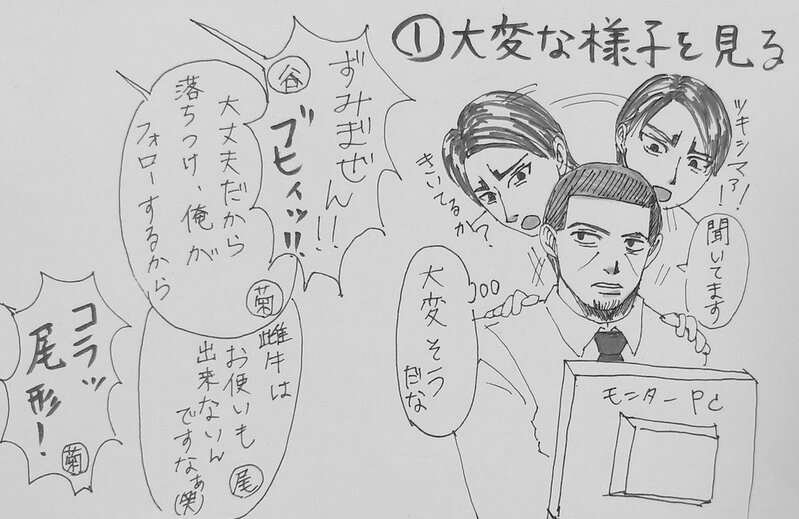 ①大変な様子を見る
ツキシマァ!!
聞いてます
きいてるか?
大変そう
だな
モニターPC
ずみまぜん!!
ブヒィッ!!
谷
大丈夫だから
落ちつけ、俺が
フォローするから
菊
雌牛は
お使いも
出来ないん
ですなぁ(笑)
尾
コラッ
尾形!
菊